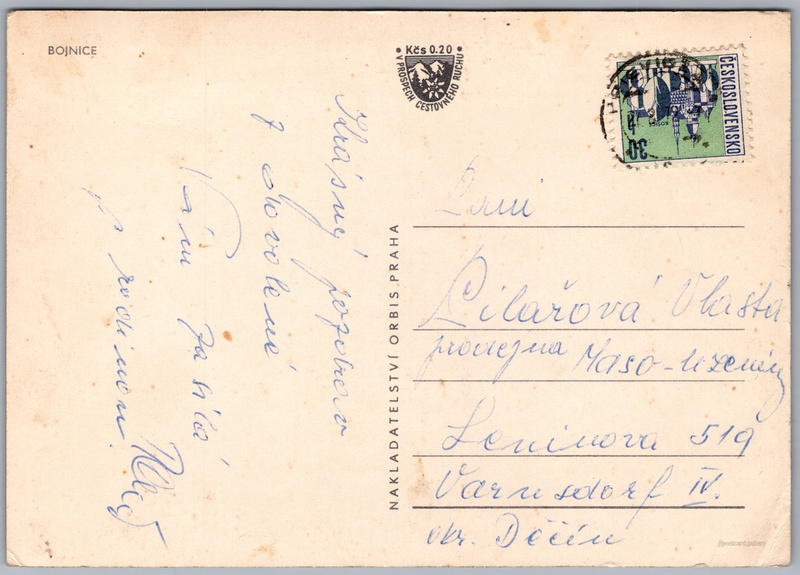 BOJNICE
• Kčs 0.20 •
V PROSPĚCH CESTOVNÉHO RUCHU
ČESKOSLOVENSKO
30
NAKLADATELSTVÍ ORBIS PRAHA
Krásný pozdrav
z dovolené
Vám zasílá
s rodinou
Paní
Pilařová Vlasta
prodejna Maso-uzeniny
Leninova 519
Varnsdorf IV.
okr. Děčín